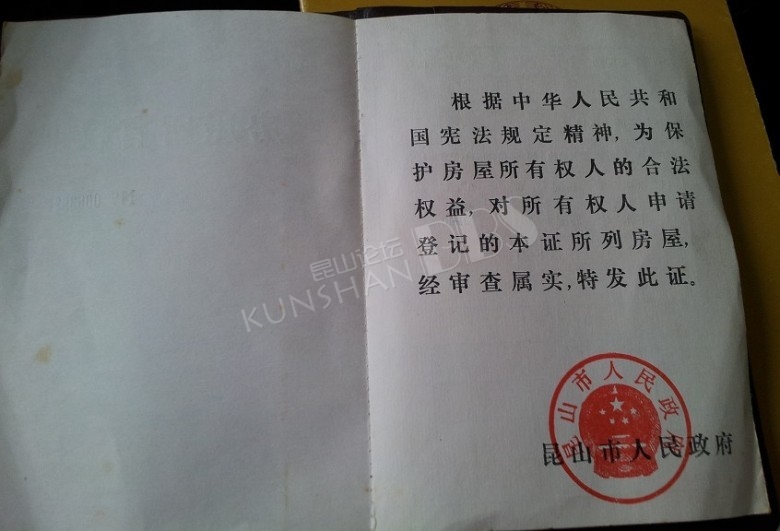 根据中华人民共和
国宪法规定精神,为保
护房屋所有权人的合法
权益,对所有权人申请
登记的本证所列房屋,
经审查属实,特发此证。
昆山市人民政府
昆山市人民政府
昆山论坛
KUNSHAN BBS